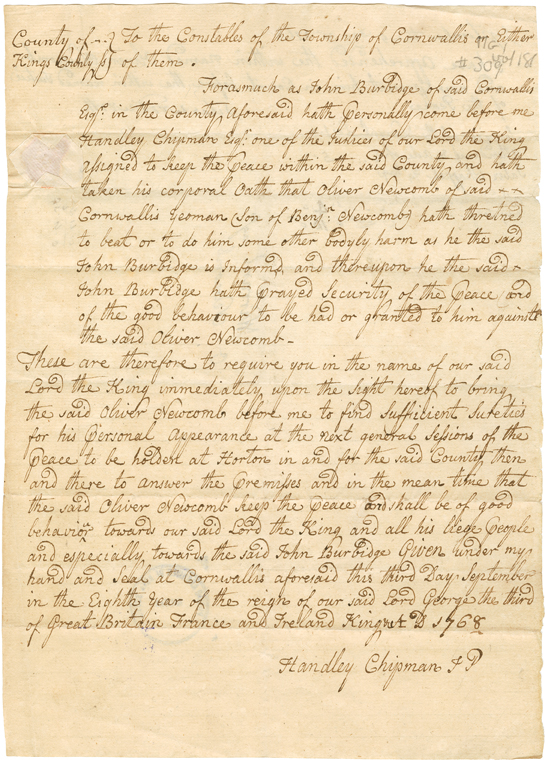 County of To the Constables of the Township of Cornwallis or Either
Kings County ss of them.
# 309
Forasmuch as John Burbidge of said Cornwallis
Esqr. in the County Aforesaid hath Personally come before me
Handley Chipman Esqr. one of the Justices of our Lord the King
assigned to keep the Peace within the said County, and hath
taken his corporal Oath that Oliver Newcomb of said
Cornwallis Yeoman (Son of Benjn. Newcomb) hath thretned
to beat or to do him some other bodyly harm as he the said
John Burbidge is Informd, and thereupon he the said
John Burbidge hath Prayed Security of the Peace, and
of the good behaviour to be had or granted to him against
the said Oliver Newcomb -
These are therefore to require you in the name of our said
Lord the King immediately upon the Sight hereof to bring
the said Oliver Newcomb before me to find Sufficient Sureties
for his Personal Appearance at the next general Sessions of the
Peace to be holden at Horton in and for the said County, then
and there to answer the Premisses and in the mean time that
the said Oliver Newcomb keep the Peace and shall be of good
behavior towards our said Lord the King and all his liege People
and especially, towards the said John Burbidge Given under my
hand and Seal at Cornwallis aforesaid this third Day September
in the Eighth Year of the reign of our said Lord George the third
of Great Britain France and Ireland King &c A D 1768
Handley Chipman J P